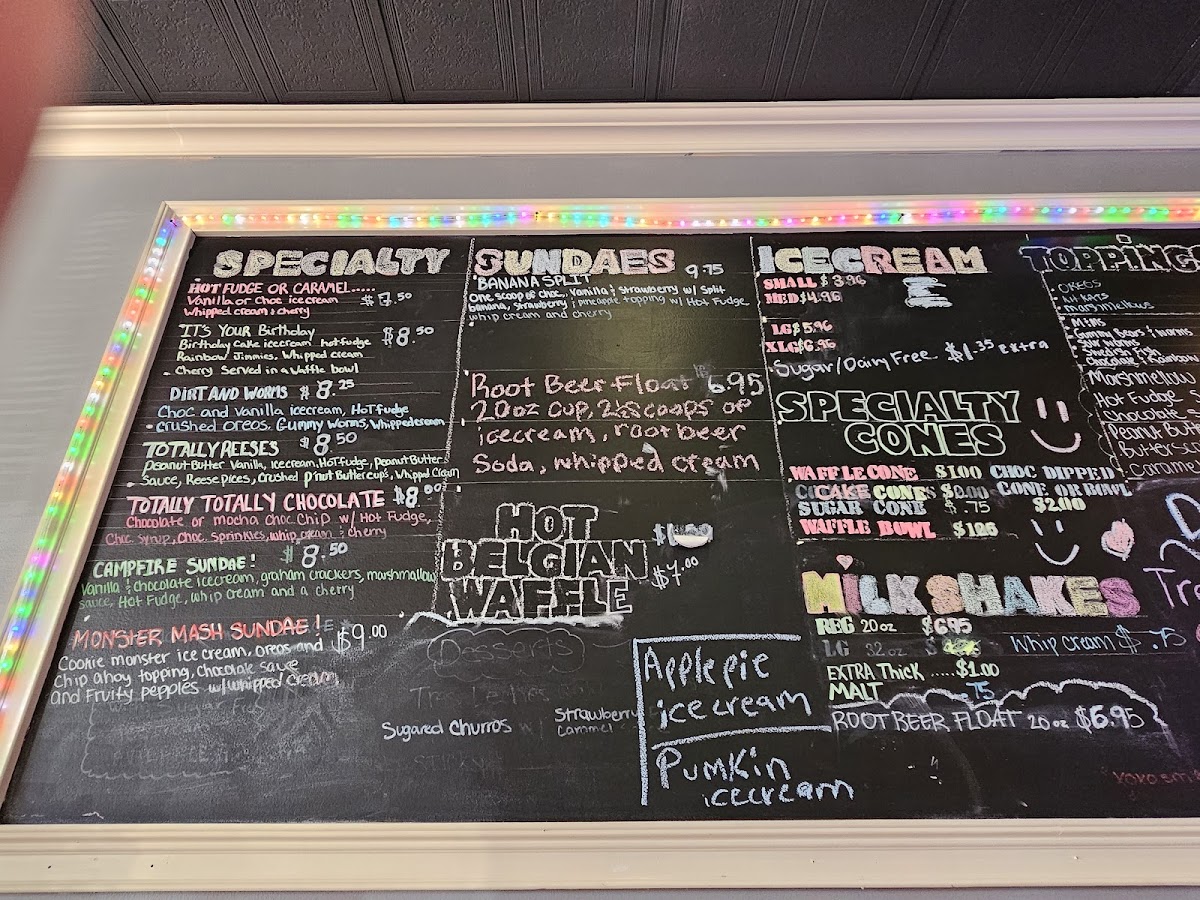 SPECIALTY
HOT FUDGE OR CARAMEL.....
Vanilla or Choc icecream $7.50
Whipped cream & cherry
IT'S YOUR Birthday
Birthday Cake icecream hot fudge $8.50
Rainbow Jimmies, Whipped cream
• Cherry Served in a Waffle bowl
DIRT AND WORMS $8.25
Choc and Vanilla icecream, Hot fudge
• crushed oreos, Gummy worms, Whipped cream
TOTALLY REESES $8.50
peanut Butter Vanilla, icecream, Hot fudge, peanut Butter
Sauce, Reese pices, crushed p'nut Buttercups, Whipped Cream
TOTALLY TOTALLY CHOCOLATE $8.00
Chocolate or mocha choc chip w/ Hot Fudge,
Choc syrup, choc sprinkles, whip cream & cherry
CAMPFIRE SUNDAE! $8.50
Vanilla & chocolate icecream, graham crackers, marshmallow
sauce, Hot Fudge, whip cream and a cherry
MONSTER MASH SUNDAE! $9.00
Cookie monster ice cream, oreos and
chip ahoy topping, chocolate sauce
and Fruity pepples w/ whipped cream
SUNDAES
BANANA SPLIT 9.75
One scoop of choc, Vanilla & strawberry w/ split
banana, strawberry & pineapple topping w/ Hot Fudge
whip cream and cherry
Root Beer Float 6.95
20oz cup, 2½ scoops of
icecream, root beer
Soda, whipped cream
HOT
BELGIAN
WAFFLE
$7.00
Desserts
Sugared churros
Strawberry
Carmel
Apple pie
ice cream
Pumkin
icecream
ICECREAM
SMALL $3.96
MED $4.96
LG $5.96
XLG $6.96
• Sugar/Dairy Free $1.35 extra
SPECIALTY
CONES
WAFFLE CONE $1.00
CAKE CONES
SUGAR CONE $.75
WAFFLE BOWL $1.25
CHOC DIPPED
CONE OR BOWL
$2.00
MILKSHAKES
REG 20oz $6.95
LG 32oz
Whip Cream $.75
EXTRA Thick .....$1.00
MALT .75
ROOT BEER FLOAT 20oz $6.95
TOPPINGS
• OREOS
• kit kats
• marshmellos
• M&Ms
• Gummy Bears & worms
• Sour worms
• Swedish Fish
Marshmellow
Hot Fudge
Chocolate
Peanut Butt
Buttersc
Caramel